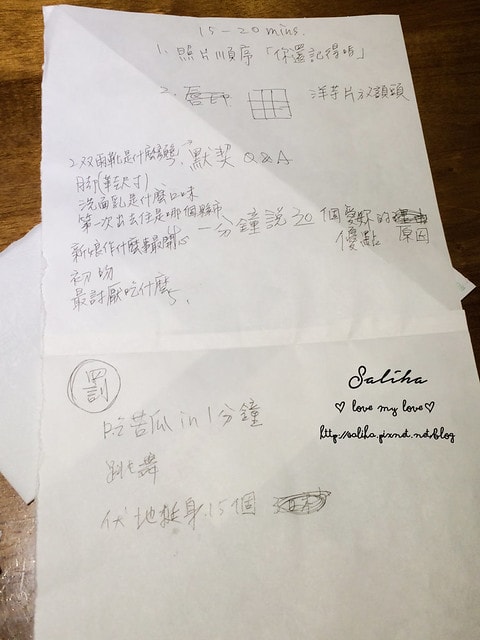 15-20 mins.
1. 照片順序「你還記得嗎」
2. 唇印 洋芋片放額頭
2. 默契 Q&A
双雨靴是什麼顏色
腳(筆尺寸)
洗面乳是什麼口味
第一次出去住是哪個縣市
一分鐘說20個愛妳的理由
優點 原因
新娘作什麼事最開心
初吻
最討厭吃什麼
罰
吃苦瓜 in 1分鐘
跳舞
伏地挺身15個
Saliha
♡ love my love ♡
http://saliha.pixnet.net/blog